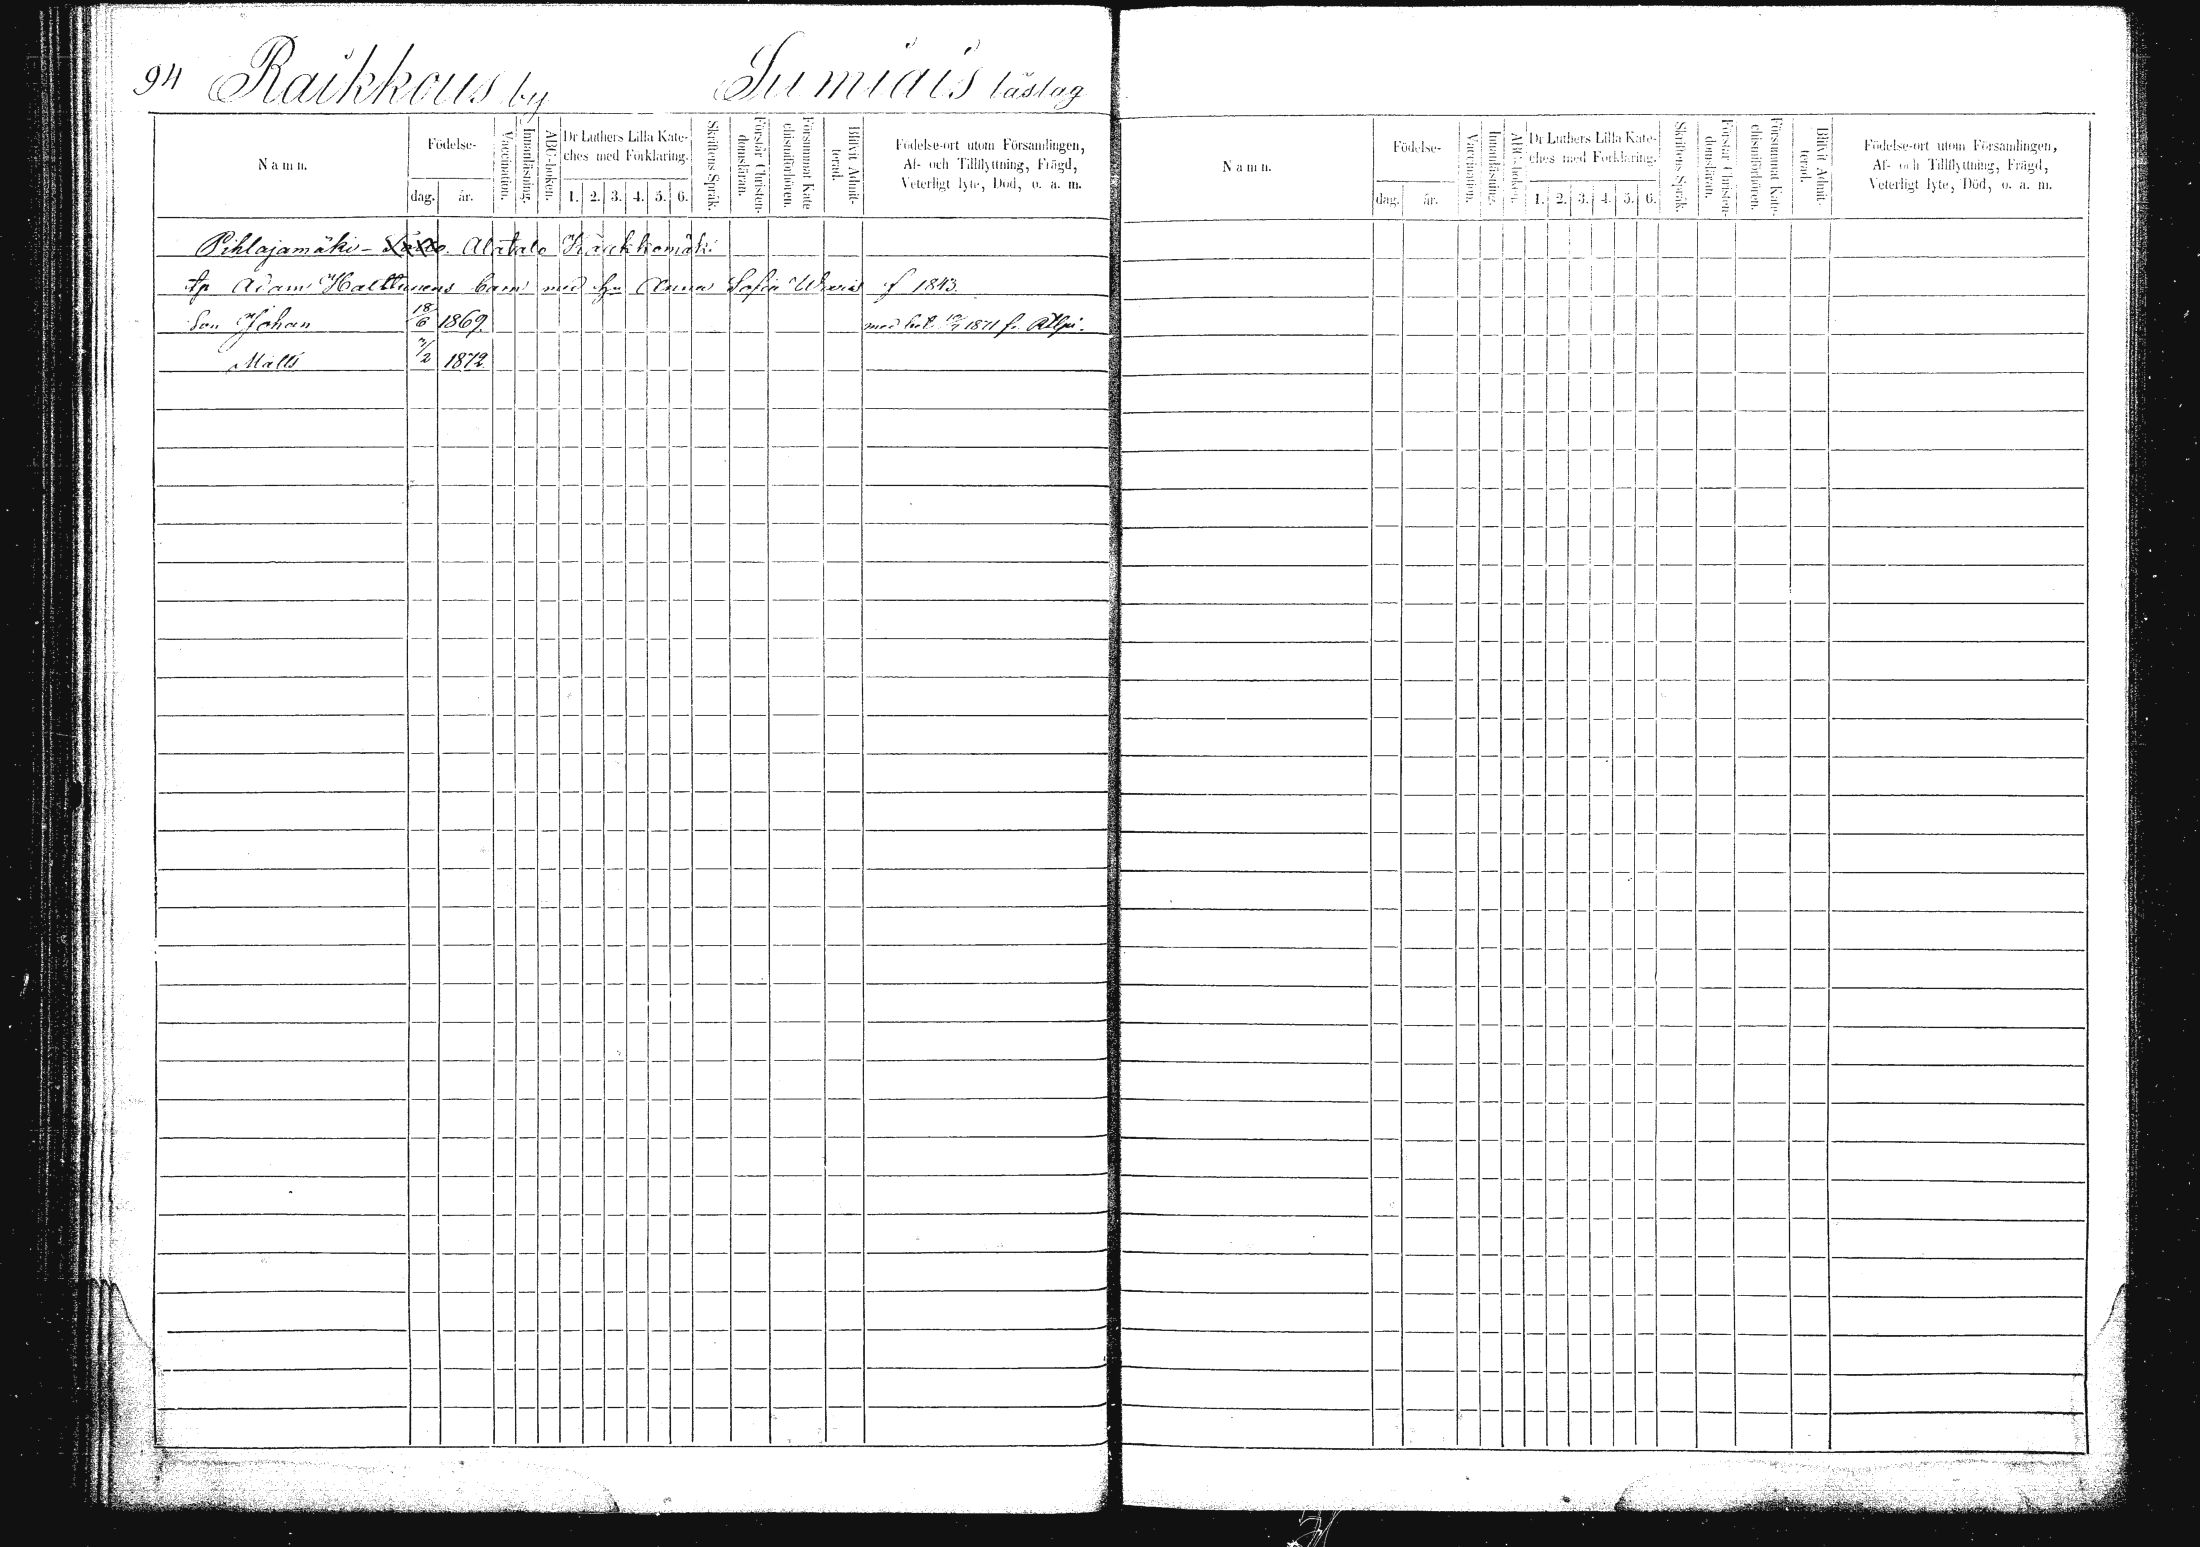 94 Raikkous by Sumiais läslag
Namn.
Födelse-
dag. år.
Vaccination.
Innanläsning.
ABC-boken.
Dr Luthers Lilla Kate-
ches med Förklaring.
1. 2. 3. 4. 5. 6.
Skriftens Språk.
Förstår Christen-
domsläran.
Försummat Kate-
chismiförhören.
Blifvit Admit-
terad.
Födelse-ort utom Församlingen,
Af- och Tillflyttning, Frägd,
Veterligt lyte, Död, o. a. m.
Pihlajamäki - Alatalo
Adam Halttunens barn med Anna Sofia f 1843.
Son Johan 18/6 1869. med bet. 1871 fr.
Matts 1872
Namn.
Födelse-
dag. år.
Vaccination.
Innanläsning.
ABC-boken.
Dr Luthers Lilla Kate-
ches med Förklaring.
1. 2. 3. 4. 5. 6.
Skriftens Språk.
Förstår Christen-
domsläran.
Försummat Kate-
chismiförhören.
Blifvit Admit-
terad.
Födelse-ort utom Församlingen,
Af- och Tillflyttning, Frägd,
Veterligt lyte, Död, o. a. m.